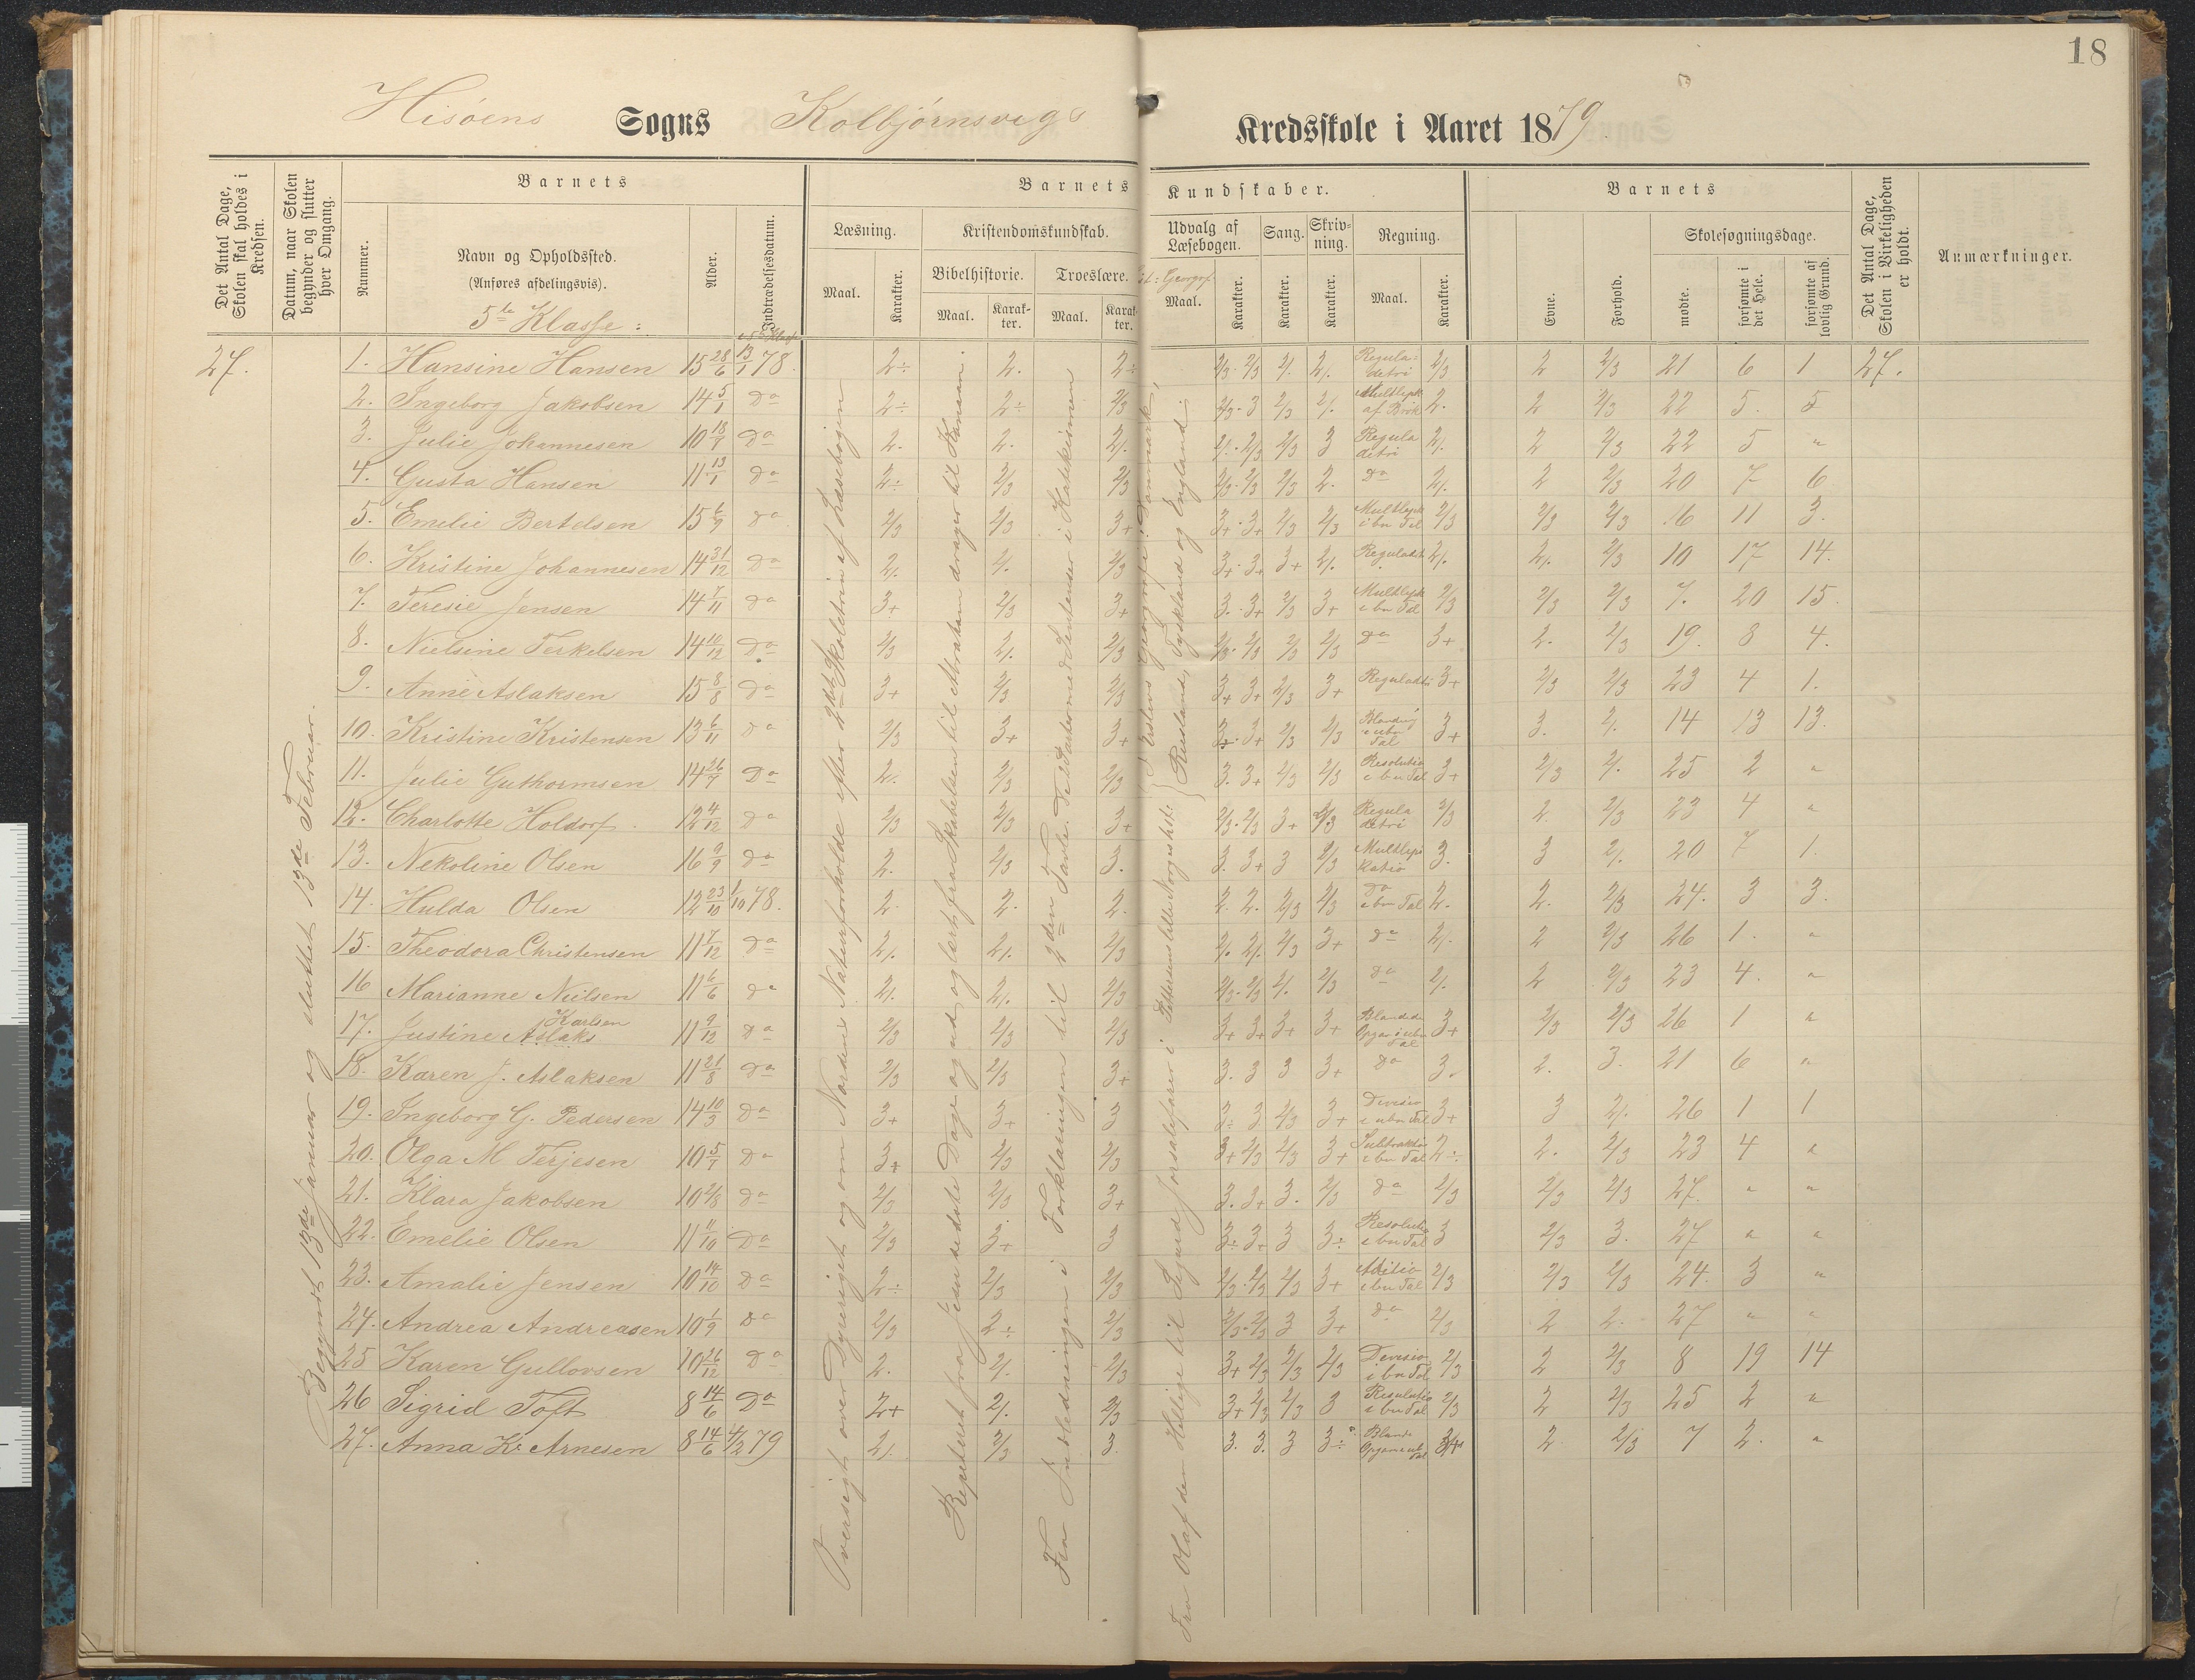 18
Hisøens Sogns Kolbjørnsvigs Kredsskole i Aaret 1879
Det Antal Dage, Skolen skal holdes i Kredsen.
Datum, naar Skolen begynder og slutter hver Omgang.
Barnets
Nummer.
Navn og Opholdssted.
(Anføres afdelingsvis).
5te Klasse:
Alder.
Indtrædelsesdatum.
Barnets Kundskaber.
Læsning.
Maal.
Karakter.
Kristendomskundskab.
Bibelhistorie.
Maal.
Karakter.
Troeslære.
Maal.
Karakter.
Udvalg af Læsebogen.
Maal.
Karakter.
Sang.
Karakter.
Skrivning.
Karakter.
Regning.
Maal.
Karakter.
Barnets
Evne.
Forhold.
Skolesøgningsdage.
mødte.
forsømte i det Hele.
forsømte af lovlig Grund.
Det Antal Dage, Skolen i Virkeligheden er holdt.
Anmærkninger.
27.
Begyndt 13de Januar og sluttet 13de Februar.
Oversigt over Dyreriget og om Nordens Naturforholde efter 2det Skoletrin af Læsebogen
Repeteret fra Jesu sidste Dage og ud og læst fra Skabelsen til Abraham drager til Kanaan.
Fra Indledningen i Forklaringen til 1den Tavle. Felt Parter med Lutander i Katekismen
Fra Olaf den Hellige til Sigurd Jorsalefarer i Pettersens lille Norgeshist:
i Erslevs Geografi: Danmark, Rusland, Tyskland og England.
1. Hansine Hansen 15 28/6 13/1 78. 2÷ 2. 2÷ 2/3. 2/3 2/. 2/. Reguladetri 2/3 2 2/3 21 6 1 27.
2. Ingeborg Jakobsen 14 5/1 Do 2÷ 2÷ 2/3 2/3. 3 2/3 2/. Multlipk af Brøk 2. 2 2/3 22 5. 5
3. Julie Johannesen 10 18/7 Do 2. 2. 2/. 2/. 2/3 2/3 3 Regula detri 2/. 2 2/3 22 5 "
4. Gusta Hansen 11 13/1 do 2÷ 2/3 2/3 2/3. 2/3 2/3 2. Do 2/. 2 2/3 20 7 6
5. Emelie Bertelsen 15 6/9 do 2/3 2/3 3+ 3+. 3+ 2/3 2/3 Multlipk i bn Tal 2/3 2/3 2/3 16 11 3.
6. Kristine Johannesen 14 31/12 Do 2/. 2/. 2/3 3+. 3+ 3+ 2/. Reguladt 2/. 2/. 2/3 10 17 14.
7. Teresie Jensen 14 7/11 do 3+ 2/3 3+ 3. 3+ 2/3 3+ Multlipk i bn Tal 2/3 2/3 2/3 7. 20 15.
8. Nielsine Terkelsen 14 10/12 Do 2/3 2/. 2/3 2/3. 2/3 2/3 2/3 Do 3+ 2. 2/3 19. 8 4.
9. Anne Aslaksen 15 8/8 Do 3+ 2/3 2/3 3+ 3+ 2/3 3+ Reguladtri 3+ 2/3 2/3 23 4 1.
10. Kristine Kristensen 13 6/11 do 2/3 3+ 3+ 3÷. 3+ 2/3 2/3 Blanding i ubn Tal 3+ 3. 2/. 14 13 13.
11. Julie Guthormsen 14 26/7 Do 2/. 2/3 2/3 3. 3+ 2/3 2/3 Resolutio i bn Tal 3+ 2/3 2/. 25 2 "
12. Charlotte Holdorf. 12 4/12 do 2/3 2/3 3+ 2/3. 2/3 3+ 2/3 Regula detri 2/3 2 2/3 23 4 "
13. Nekoline Olsen 16 9/9 do 2. 2/3 3. 3. 3+ 3 2/3 Multlipikatio 3. 3 2/. 20 7 1.
14. Hulda Olsen 12 23/10 1/10 78. 2. 2. 2. 2. 2. 2/3 2/3 do i bn Tal 2. 2. 2/3 24. 3 3.
15. Theodora Christensen 11 7/12 do 2/. 2/. 2/3 2/. 2/. 2/3 3+ do 2/. 2 2/3 26 1. "
16 Marianne Nielsen 11 6/6 do 2/. 2/. 2/3 2/3. 2/3 2/. 2/3 do 2/. 2 2/3 23 4. "
17. Justine Aslaks Karlsen 11 9/12 do 2/3 2/3 2/3 3+ 3+ 3+ 3+ Blandede Opgav i ubn Tal 3+ 2/3 2/3 26 1 "
18. Karen J. Aslaksen 11 21/8 do 2/3 2/3 3+ 3. 3 3 3+ do 3. 2. 3. 21 6 "
19. Ingeborg G. Pedersen 14 10/3 Do 3+ 3+ 3 3÷ 3 2/3 3+ Devisio i ubn Tal 3+ 3 2/. 26 1 1
20. Olga M Terjesen 10 5/7 Do 3+ 2/3 2/3 3+ 2/3 2/3 3+ Subtraktio i bn Tal 2÷ 2. 2/3 23 4 "
21. Klara Jakobsen 10 2/8 do 2/3 2/3 3+ 3. 3+ 3. 2/3 do 2/3 2/3 2/3 27. " "
22. Emelie Olsen 11 11/10 Do 2/3 3+ 3 3÷ 3+ 3 3÷ Resolutio i bn Tal 3 2/3 3. 27 " "
23. Amalie Jensen 10 14/10 Do 2÷ 2/3 2/3 2/3. 2/3 2/3 3+ Aditio i bn Tal 2/3 2/3 2/3 24. 3 "
24. Andrea Andreasen 10 1/9 Do 2/3 2÷ 2/3 2/3. 2/3 3 3+ do 2/3 2 2. 27 " "
25 Karen Gullovsen 10 26/12 Do 2. 2/. 2/3 3+ 2/3 2/3 2/3 Devisio i bn Tal 2/3 2 2/3 8 19 14
26 Sigrid Toft 8 14/6 Do 2+ 2/. 2/3 3+ 2/3 2/3 3 Resolutio i bn Tal 2/3 2 2/3 25 2 "
27. Anna K. Arnesen 8 14/6 4/2 79 2/. 2/3 3. 3. 3. 3 3÷ Bland. Opgave i ubn Tal 3+ 2 2/3 7 2. "